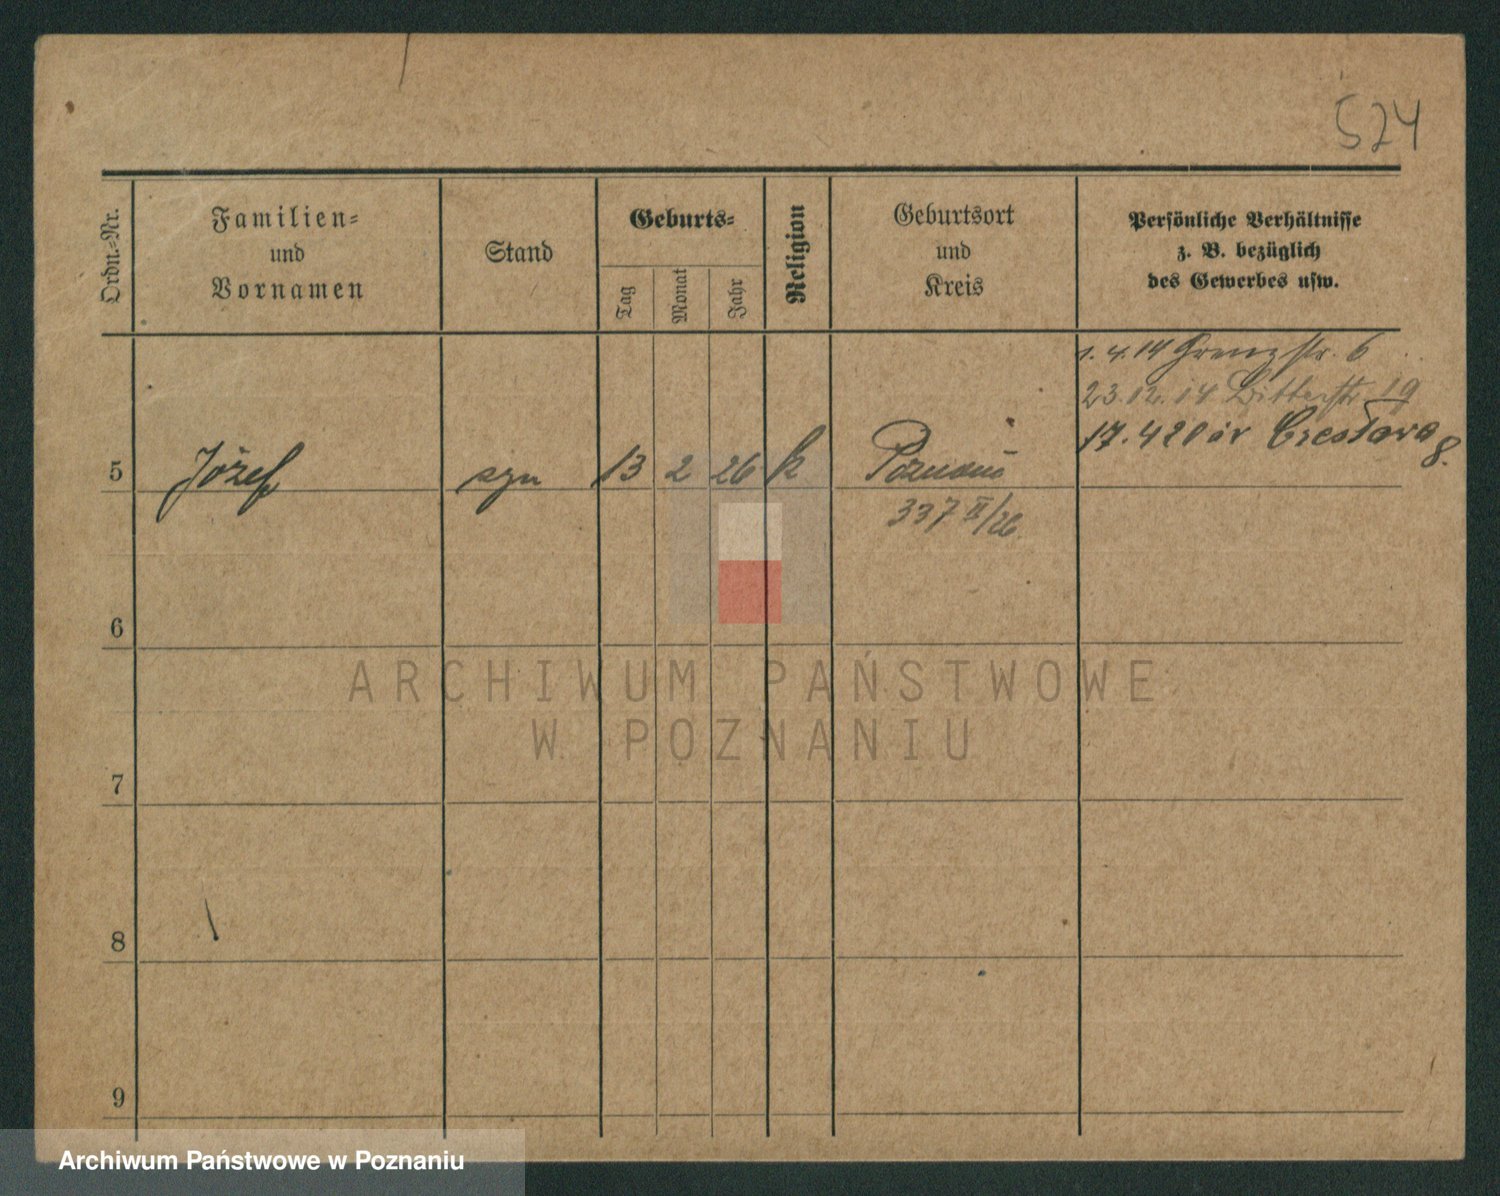 524
Ordn.-Nr.
Familien-
und
Vornamen
Stand
Geburts-
Tag
Monat
Jahr
Religion
Geburtsort
und
Kreis
Persönliche Verhältnisse
z. B. bezüglich
des Gewerbes usw.
1. 4. 14 Grenzstr. 6
23. 12. 14 19
17. 4 20 Czesława 8.
5 Józef syn 13 2 26 k Poznań
337 II/26
6
ARCHIWUM PAŃSTWOWE
W POZNANIU
7
8
9
Archiwum Państwowe w Poznaniu